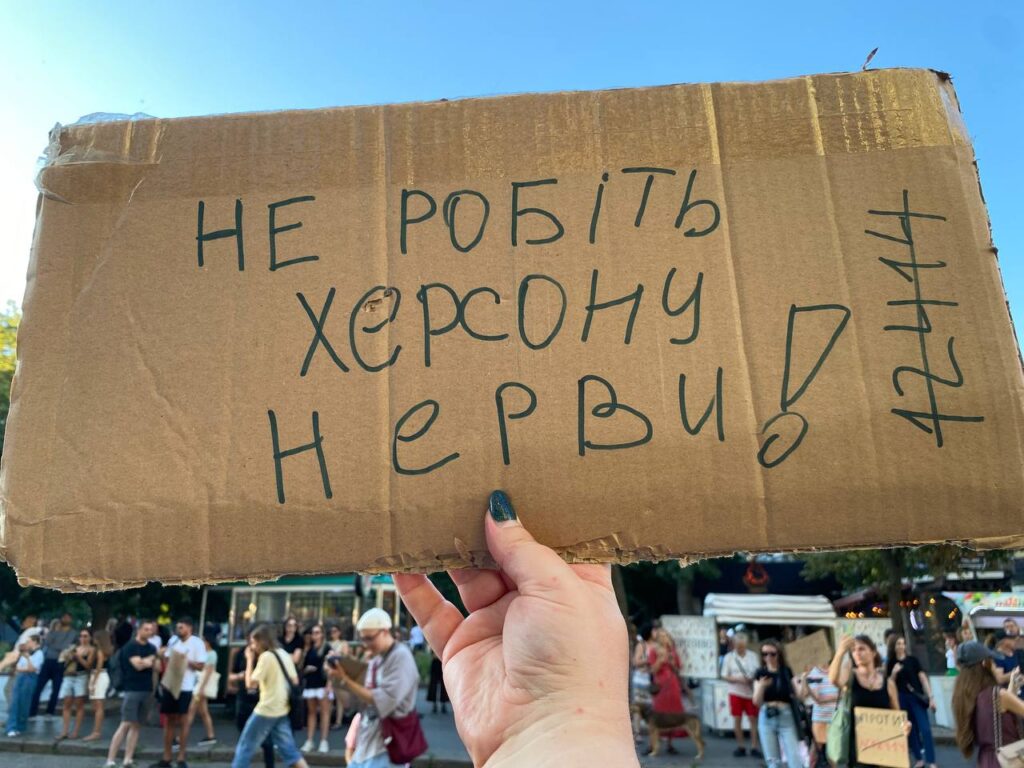 НЕ РОБІТЬ
ХЕРСОНУ
НЕРВИ!
12414